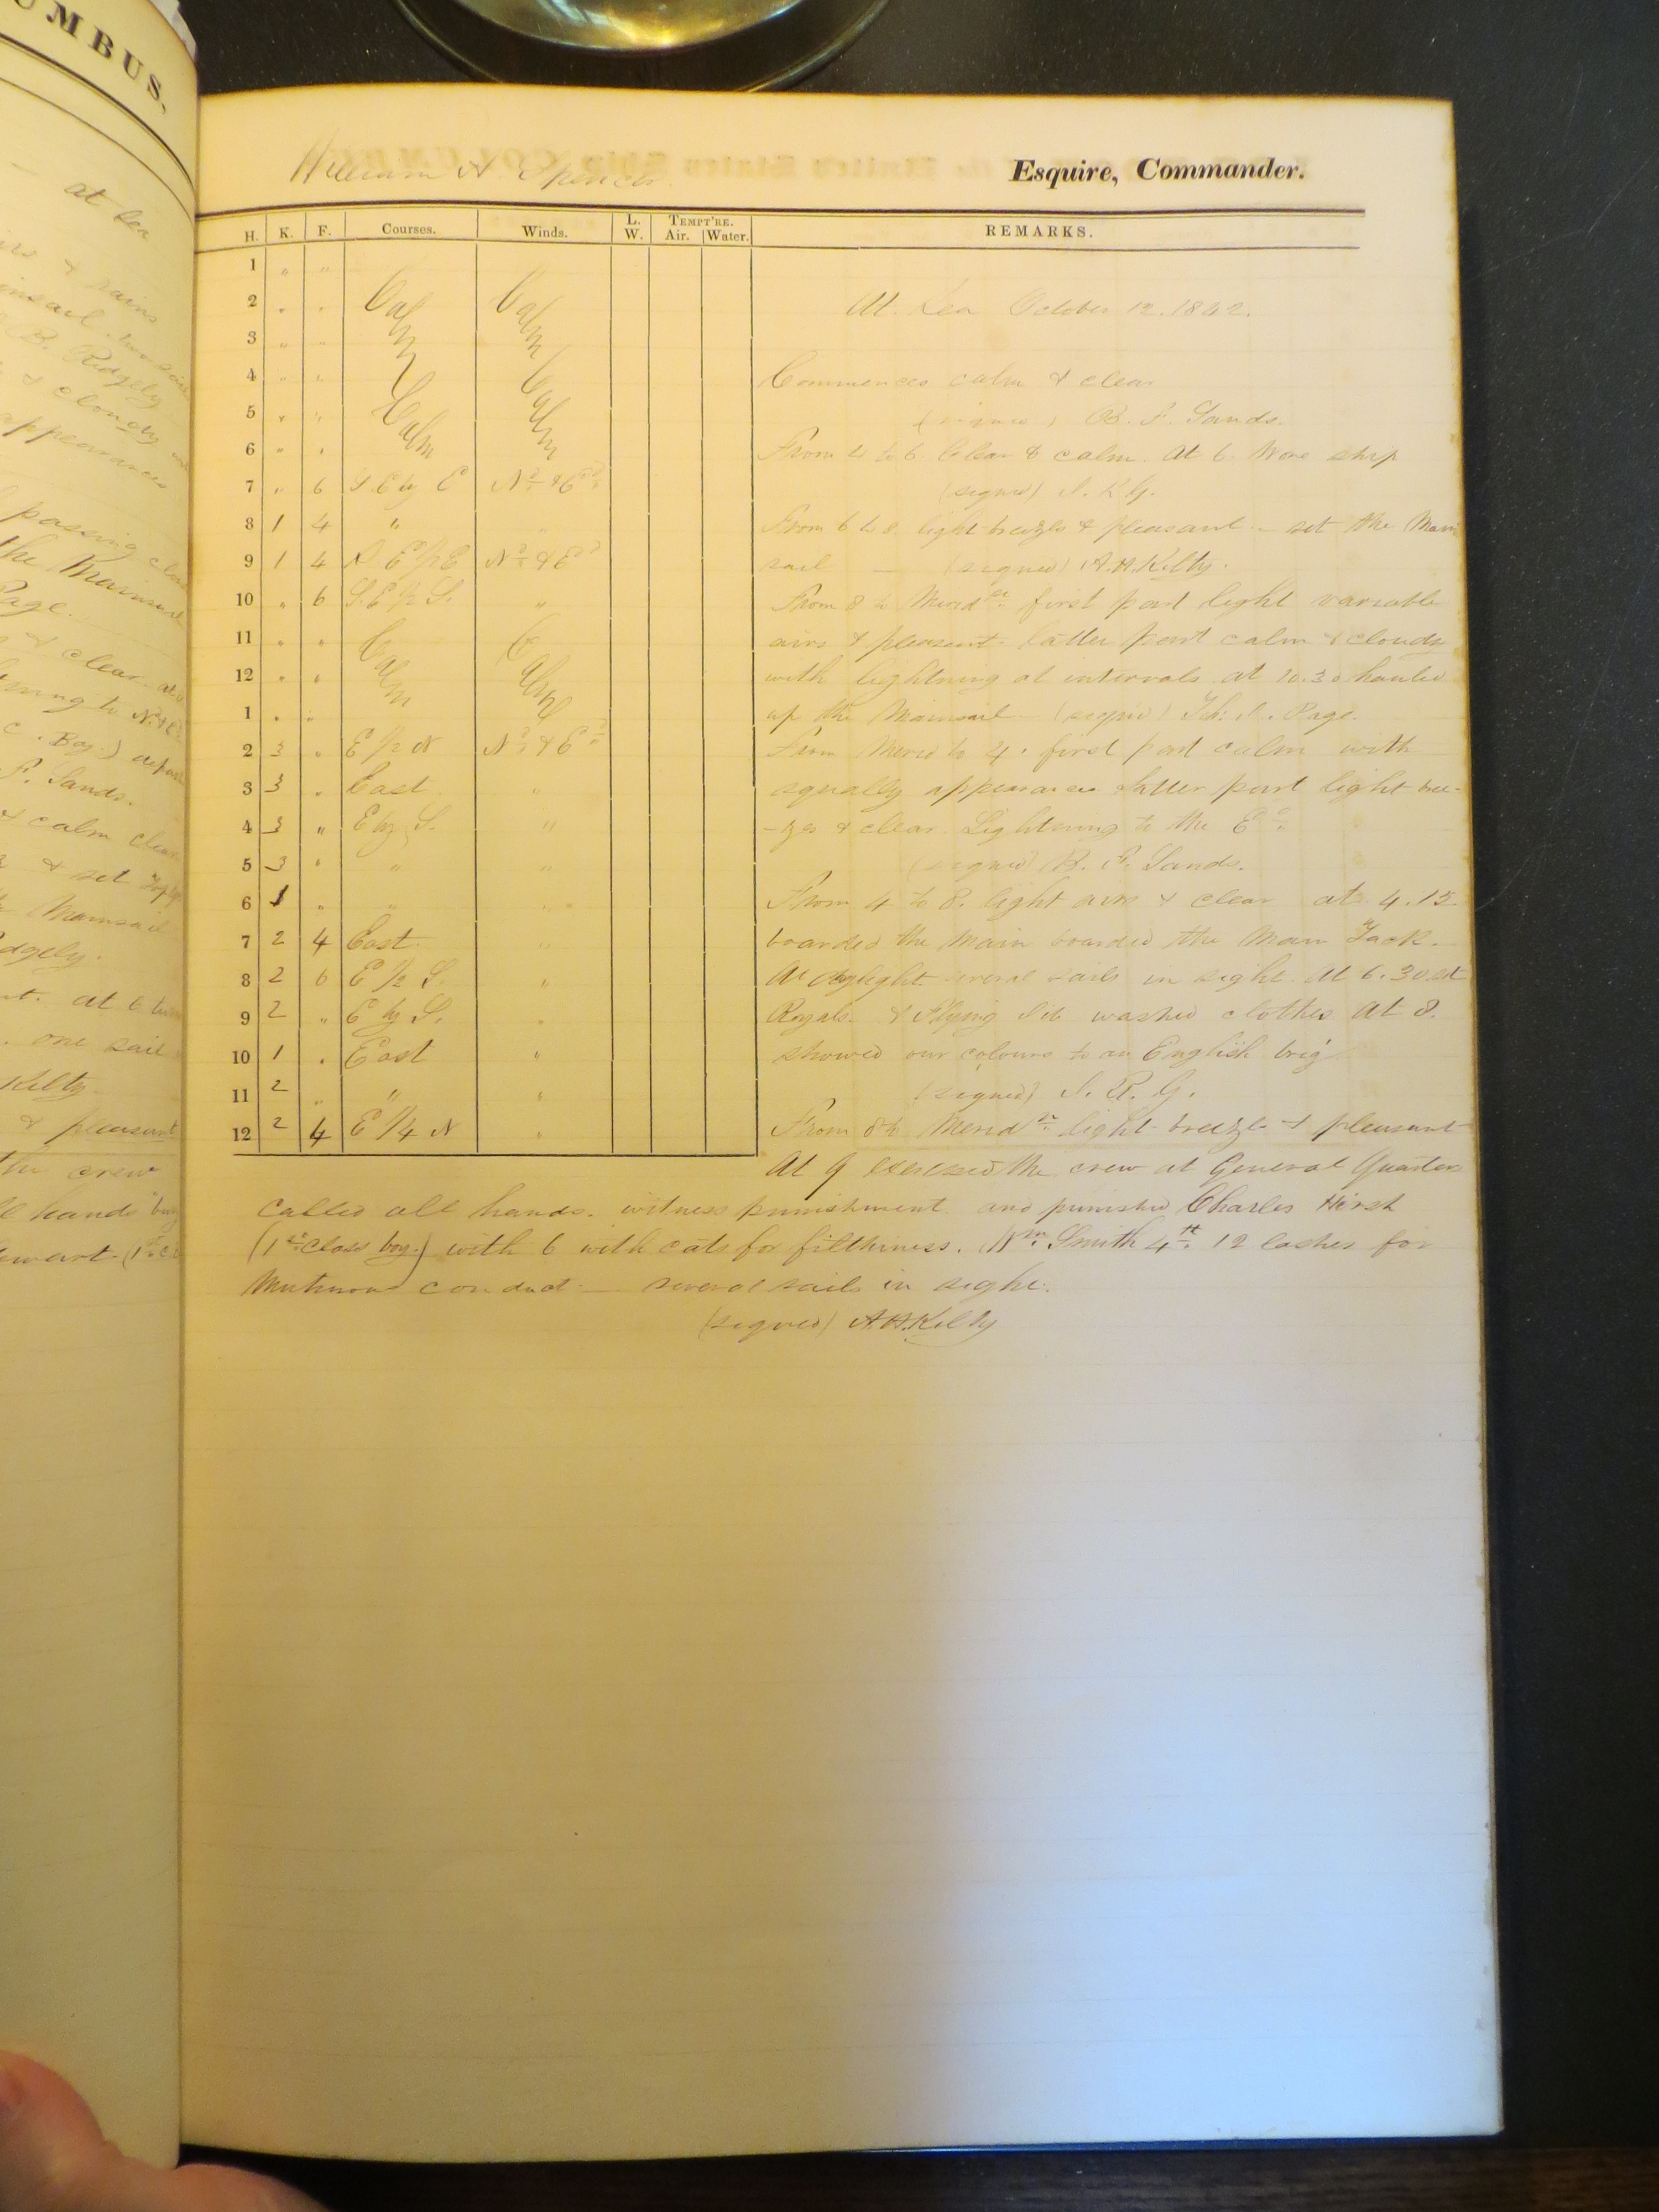 UMBUS.
at Sea
& rains
B. Ridgely
& cloudy
appearances
passing
the Mainsail
Page.
& clear
P. Sands.
& calm
& set
Mainsail
at 6
one sail
Kilty
& pleasant
the crew
hands
William A. Spencer
Esquire, Commander.
H. K. F. Courses. Winds. L. W. TEMPT'RE. Air. Water. REMARKS.
1 " "
2 " " Calm Calm At Sea October 12. 1842.
3 " "
4 " " Commences calm & clear
5 " " Calm Calm (signed) B. F. Sands.
6 " " From 4 to 6. Clear & calm. At 6. Wore ship
7 " 6 S.E by E Nd & Ed (signed) S. R. G.
8 1 4 " " From 6 to 8. light breezes & pleasant - set the Main
9 1 4 S. E 1/2 E Nd & Ed sail — (signed) A.H. Kilty.
10 " 6 S.E 1/2 S. " From 8 to Mered first part light variable
11 " " Calm Calm airs & pleasant latter part calm & cloudy
12 " " with lightning at intervals at 10.30 hauled
1 " " up the Mainsail (signed) Th: J. Page.
2 3 " E 1/2 N Nd & Ed From Merid to 4. first part calm with
3 3 " East " squally appearances latter part light bree-
4 3 " E by S. " -zes & clear. Lightning to the Ed.
5 3 " " " (signed) B. F. Sands.
6 1 " " " From 4 to 8. light airs & clear at 4.15
7 2 4 East " boarded the Main boarded the Main Tack.
8 2 6 E 1/2 S. " At daylight several sails in sight. At 6.30 set
9 2 " E by S. " Royals. & Flying Jib washed clothes At 8.
10 1 " East " showed our colours to an English brig
11 2 " " " (signed) S. R. G.
12 2 4 E 1/4 N " From 8 to Merid light breeze & pleasant
At 9 exercised the crew at General Quarters
called all hands. witness punishment. and punished Charles Hirst
(1st Class boy.) with 6 with cats for filthiness. Wm. Smith 4th. 12 lashes for
Mutinous conduct — several sails in sight.
(signed) A.H. Kilty